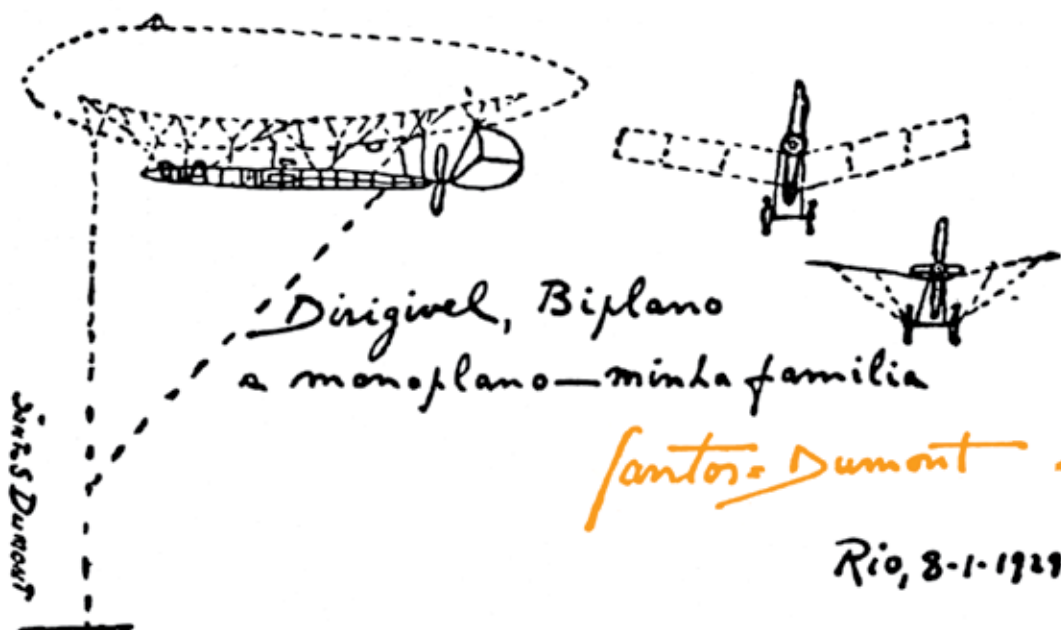 Dirigivel, Biplano
e monoplano—minha familia
Santos=Dumont
Rio, 8-1-1929
Santos Dumont